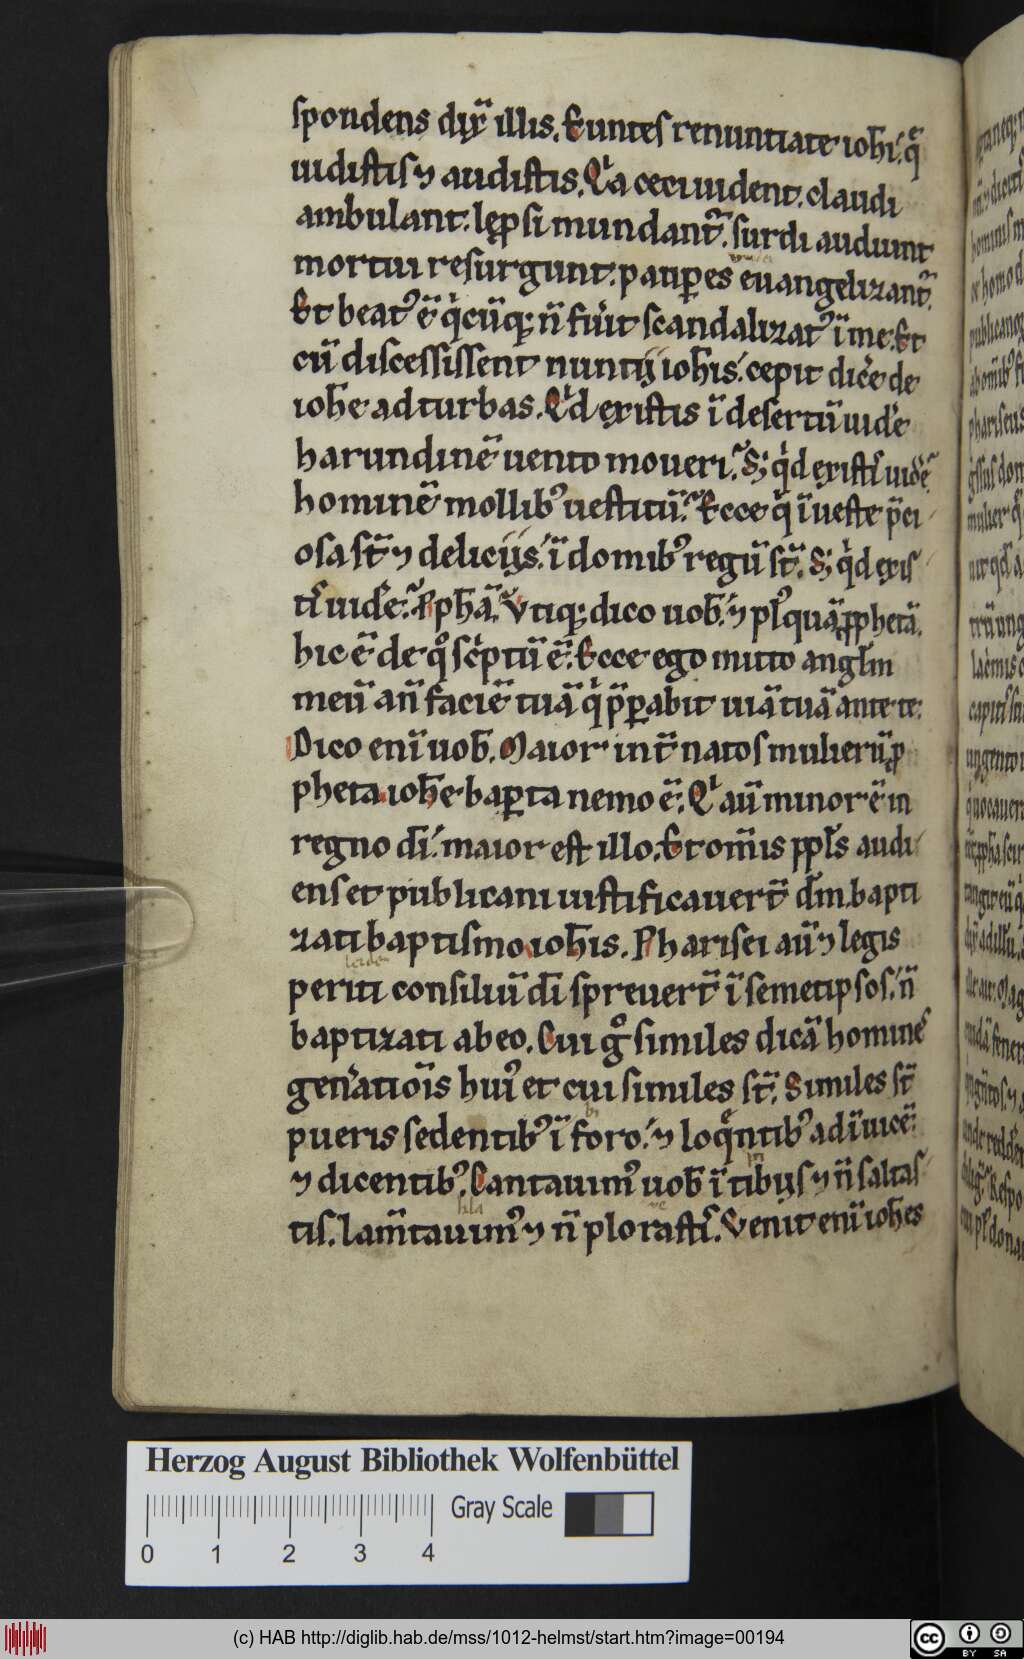 spondens dix̄ illis. Euntes renuntiate ioh̄i. q̄
uidistis ⁊ audistis. Qͥa ceci uident. claudi
ambulant. lep̱si mundant᷑. surdi audiunt
mortui resurgunt. paup̱es euangelizant᷑.
Et beatꝰ ē q̇cūq; n̄ fuīt scandalizatꝰ ī me. Et
cū discessissent nuntij ioh̄is. cepit dic̄e de
ioh̄e ad turbas. Qͥd existis ī desertū uid̄e
harundinē uento moueri. S; qͥd existis uid̄e
hominē mollibꝰ uestitū. Ecce qͥ ī ueste p̄ci
osa st̄ ⁊ delicijs. ī domibꝰ regū st̄. S; qͥd exis
tis uid̄e. P̱ph̄ā. Vtiq; dico uob̄. ⁊ plꝰquā p̱phetā.
hic ē de qͦ scͥptū ē. Ecce ego mitto angl̄m
meū an̄ faciē tuā qͥ p̄p̱abit uiā tuā ante te.
Dico eni uob̄. Maior int̄ natos mulierū p̱
pheta ioh̄e bap̄ta nemo ē. Qͥ aū minor ē in
regno dī. maior est illo. Et om̄is ppl̄s audi
ens et publicani iustificauert̄ dm̄. bapti
zati baptismo ioh̄is. Pharisei aū ⁊ legis
periti consiliū dī spreuert̄ ī semetipsos. n̄
baptizati ab eo. Cui gͦ similes dicā homines
gen̄atiōis huiꝰ et cui similes st̄. Similes st̄
pueris sedentibꝰ ī foro. ⁊ loq̄ntibꝰ ad īuicē.
⁊ dicentibꝰ. Cantauimꝰ uob̄ ī tibijs ⁊ n̄ saltas
tis. lam̄tauimꝰ ⁊ n̄ plorastis. Venit eni ioh̄es
Herzog August Bibliothek Wolfenbüttel
Gray Scale
0 1 2 3 4
(c) HAB http://diglib.hab.de/mss/1012-helmst/start.htm?image=00194
cc BY SA